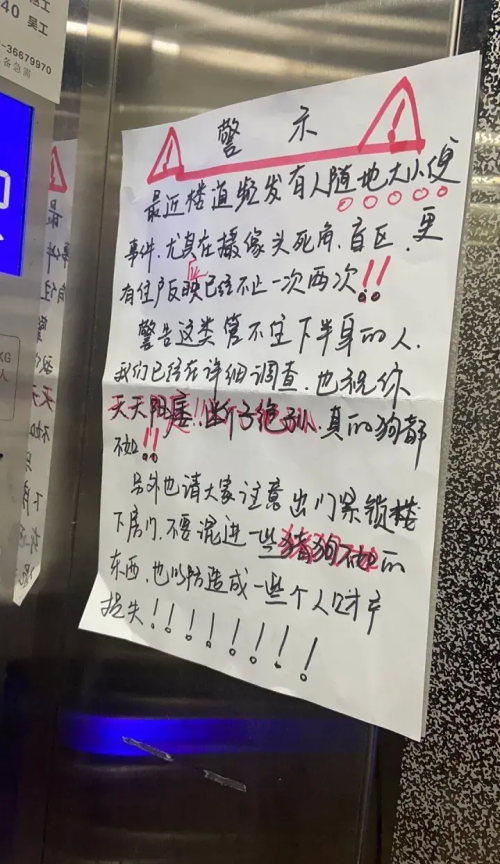 40 吴工
-36679970
警 示
最近楼道频发有人随地大小便
事件.尤其在摄像头死角.盲区.更
有住户反映已经不止一次两次!!
警告这类管不住下半身的人.
我们已经在详细调查.也祝你
天天阳痿!!断子绝孙.真的狗都
不如!!
另外也请大家注意出门紧锁楼
下房门.不要混进一些猪狗不如的
东西.也以防造成一些个人财产
损失!!!!!!!!